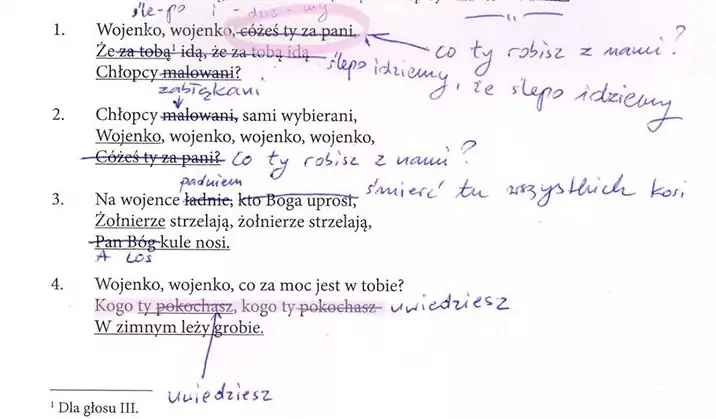 śle-po i - dzie - my
1. Wojenko, wojenko, cóżeś ty za pani.
co ty robisz z nami?
Że za tobą¹ idą, że za tobą idą
ślepo idziemy, że ślepo idziemy
Chłopcy malowani?
zabłąkani
2. Chłopcy malowani, sami wybierani,
Wojenko, wojenko, wojenko, wojenko,
Cóżeś ty za pani? Co ty robisz z nami?
padniem
3. Na wojence ładnie, kto Boga uprosi, śmierć tu wszystkich kosi
Żołnierze strzelają, żołnierze strzelają,
Pan Bóg kule nosi.
A LOS
4. Wojenko, wojenko, co za moc jest w tobie?
Kogo ty pokochasz, kogo ty pokochasz uwiedziesz
W zimnym leży grobie.
uwiedziesz
¹ Dla głosu III.